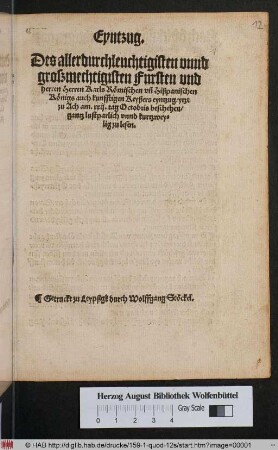 Eyntzug.
Des allerdurchleuchtigisten vnnd
großmechtigisten Fursten vnd
herren Herren Karls Römischen vñ Hispanischen
Königs auch kunfftigen Keysers eynzug yetz
zu Ach am. xxij. tag Octobris beschehen/
gantz lustparlich vnnd kurtzwey-
lig zu lesen.
¶ Getruckt zu Leyptzgk durch Wolffgang Stöckel.
Herzog August Bibliothek Wolfenbüttel
Gray Scale
© HAB http://diglib.hab.de/drucke/159-1-quod-12s/start.htm?image=00001